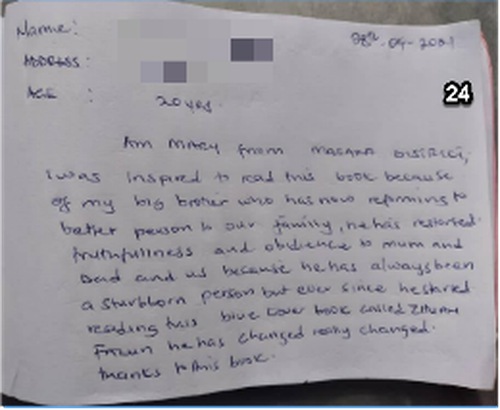 Name:
08th-04-2021
ADDRESS:
AGE : 20 yrs.
24
Am MARY from MASAKA DISTRICT,
I was inspired to read this book because
of my big brother who has now reforming to
better person to our family, he has restarted
truthfullness and obidience to mum and
Dad and us because he has always been
a sturbborn person but ever since he started
reading this blue cover book called ZHUAN
he has changed really changed.
thanks to this book.